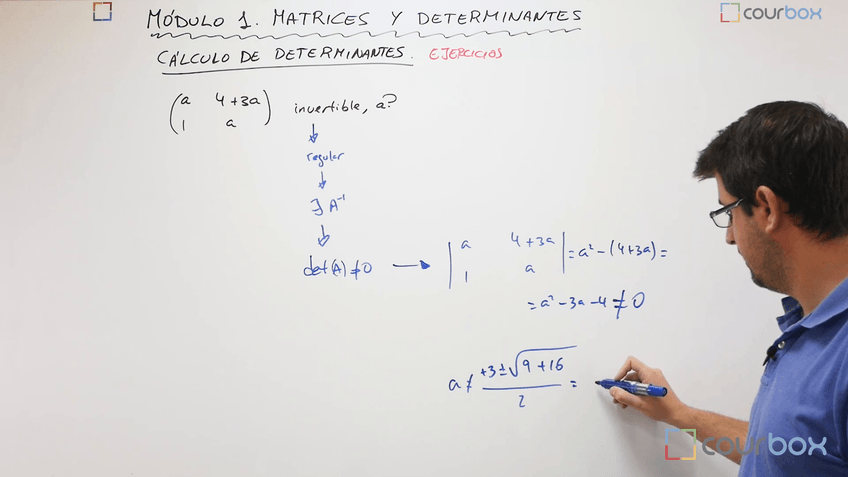 MÓDULO 1. MATRICES Y DETERMINANTES
courbox
CÁLCULO DE DETERMINANTES. EJERCICIOS
(a 4+3a)
(1 a) invertible, a?
↓
regular
↓
∃ A⁻¹
↓
det(A) ≠ 0 →
|a 4+3a|
|1 a| = a² - (4+3a) =
= a² - 3a - 4 ≠ 0
a ≠ (+3 ± √(9 + 16)) / 2 =
courbox